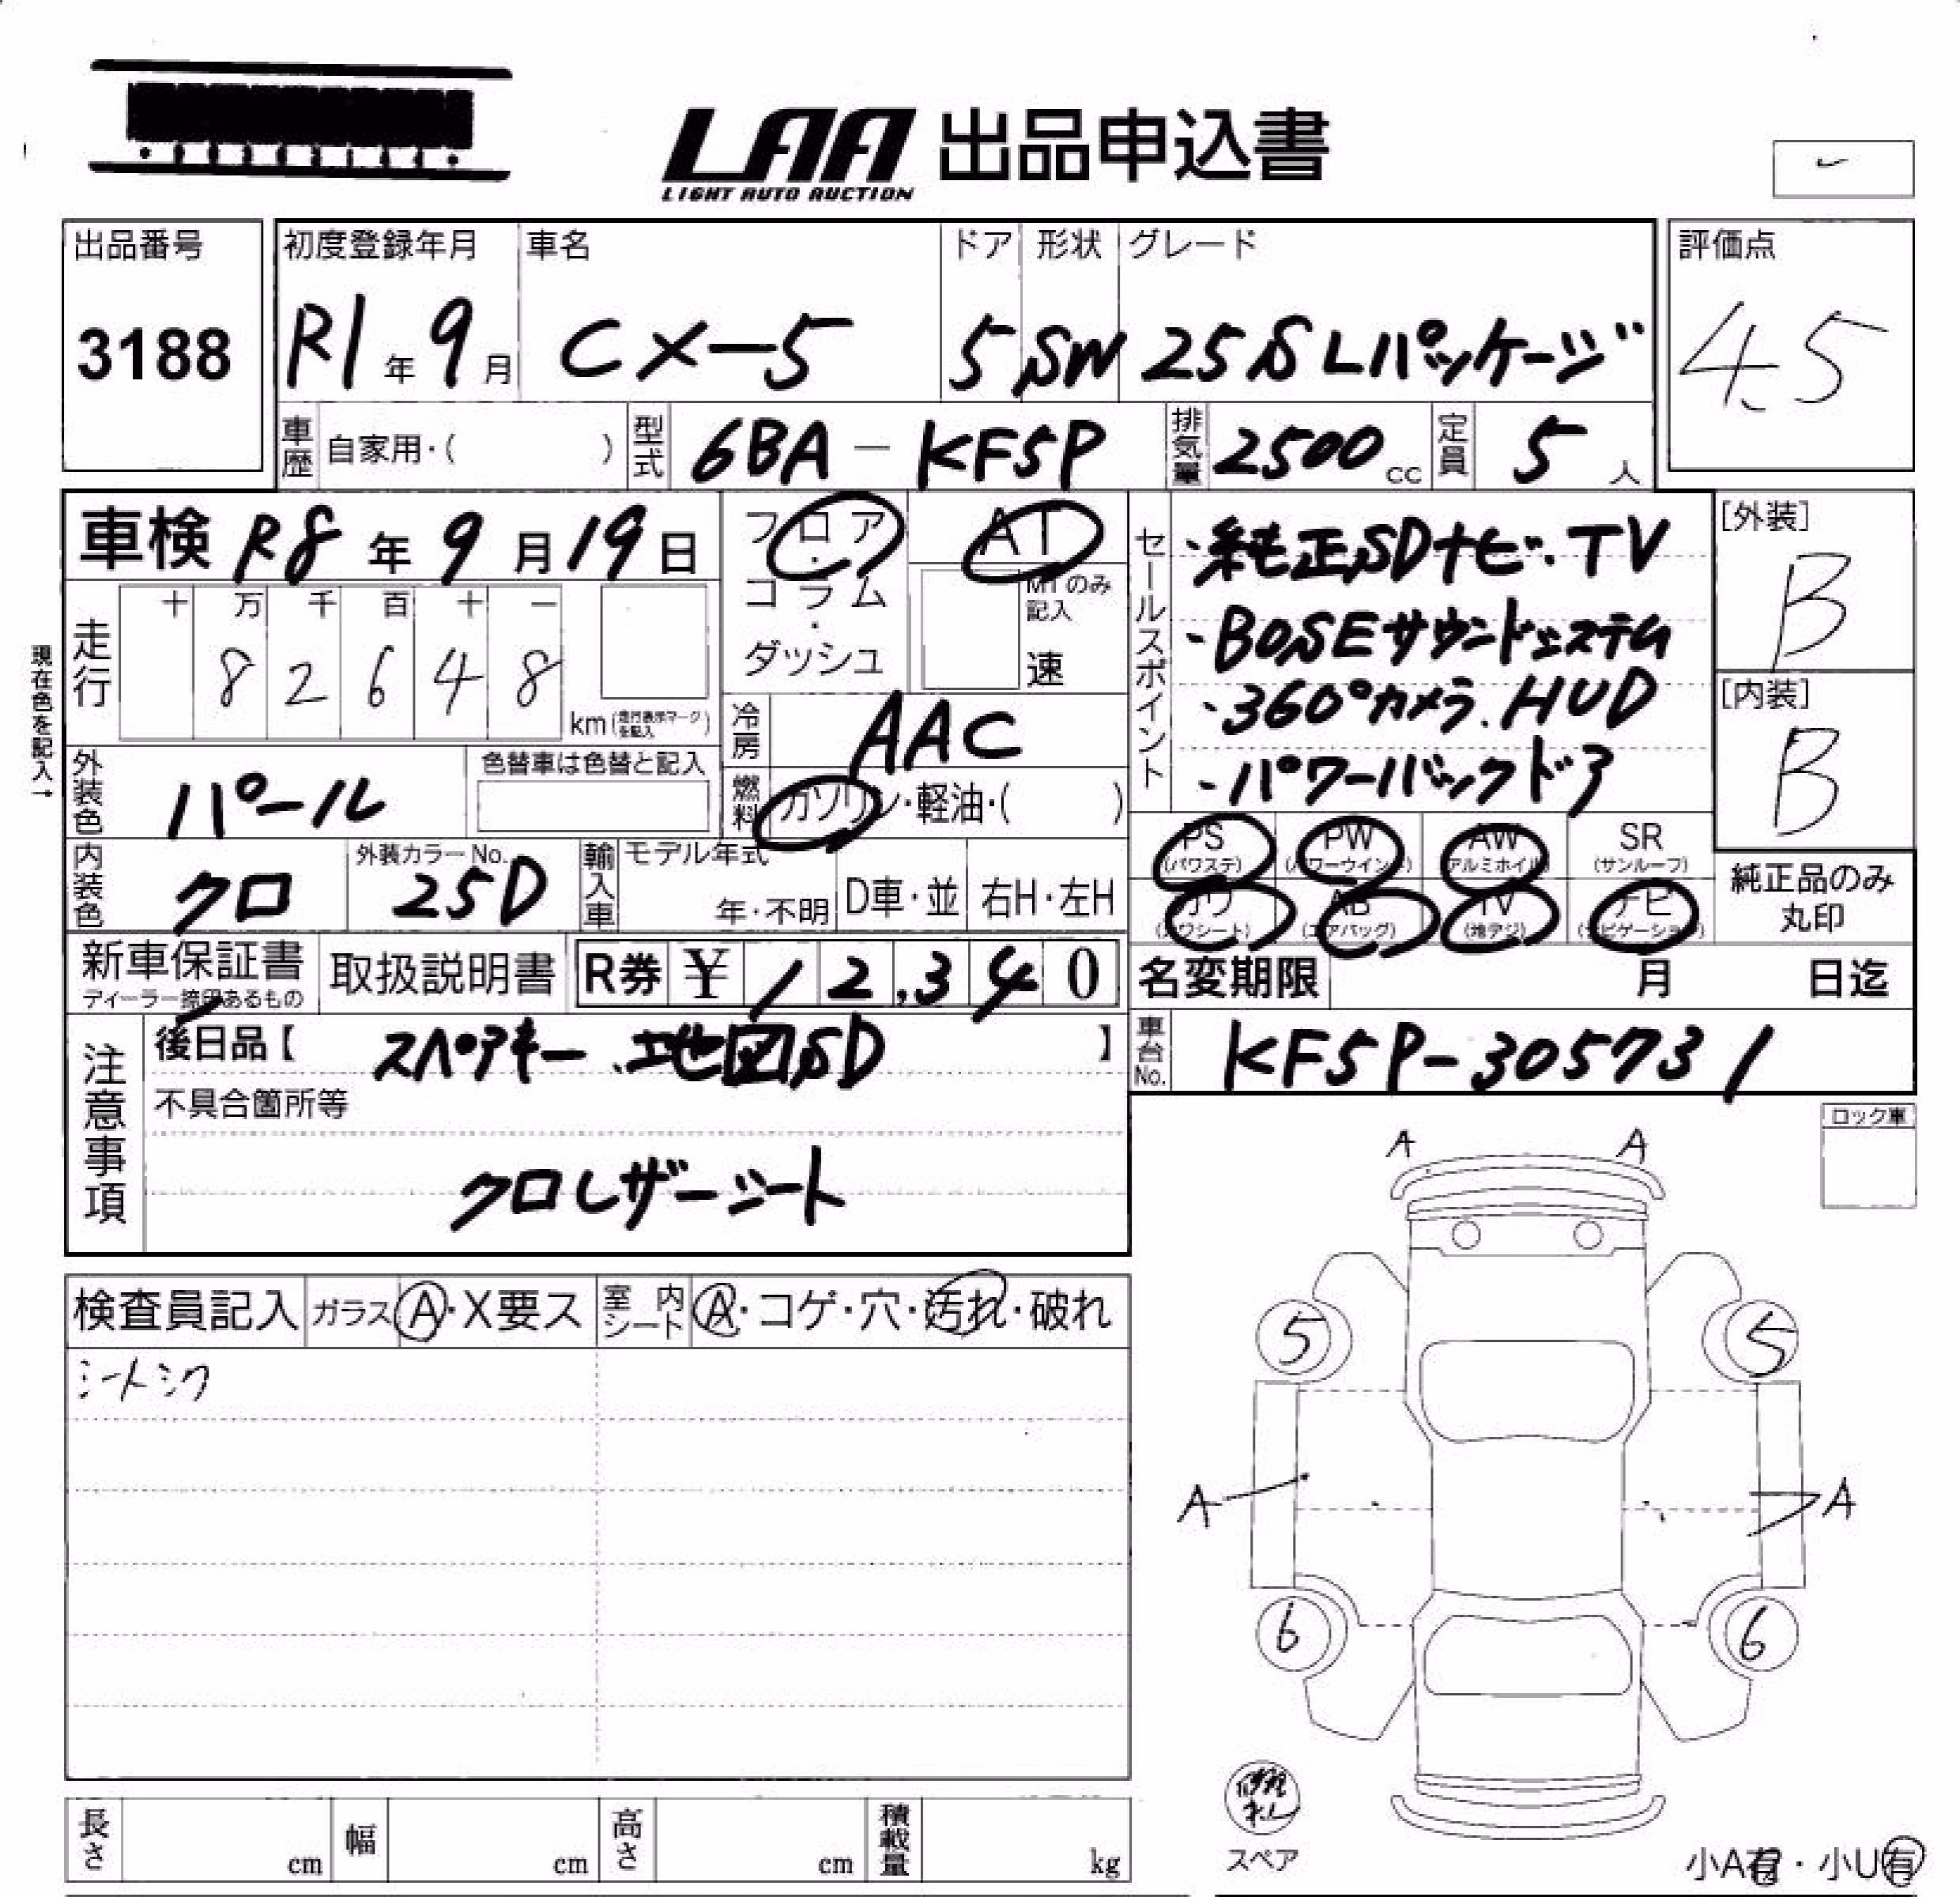 LAA 出品申込書
LIGHT AUTO AUCTION
出品番号 初度登録年月 車名 ドア 形状 グレード 評価点
3188 R1年 9月 CX-5 5 SW 25S Lパッケージ 4.5
車歴 自家用・( ) 型式 6BA-KF5P 排気量 2500cc 定員 5人
車検 R8年 9月19日 フロア・コラム・ダッシュ AT
MTのみ記入
速
セールスポイント
・純正SDナビ.TV
・BOSEサウンドシステム
・360°カメラ.HUD
・パワーバックドア
[外装]
B
[内装]
B
現在色を記入→
走行 十 万 千 百 十 一
8 2 6 4 8 km(走行表示マークを記入)
冷房 AAC
外装色 パール 色替車は色替と記入
燃料 ガソリン・軽油・( )
内装色 クロ 外装カラーNo. 25D 輸入車 モデル年式 年・不明 D車・並 右H・左H
PS (パワステ) PW (パワーウインド) AW (アルミホイル) SR (サンルーフ)
カワ (カワシート) AB (エアバッグ) TV (地デジ) ナビ (ナビゲーション)
純正品のみ丸印
新車保証書 ディーラー締印あるもの 取扱説明書 R券 ¥12,340
名変期限 月 日迄
注意事項
後日品【 スペアキー、地図SD 】
車台No. KF5P-305731
不具合箇所等
クロレザーシート
ロック車
検査員記入 ガラス A・X要ス 室内シート A・コゲ・穴・汚れ・破れ
シートシワ
A A
5 5
A A
6 6
スペア
小A有・小U有
長さ cm 幅 cm 高さ cm 積載量 kg